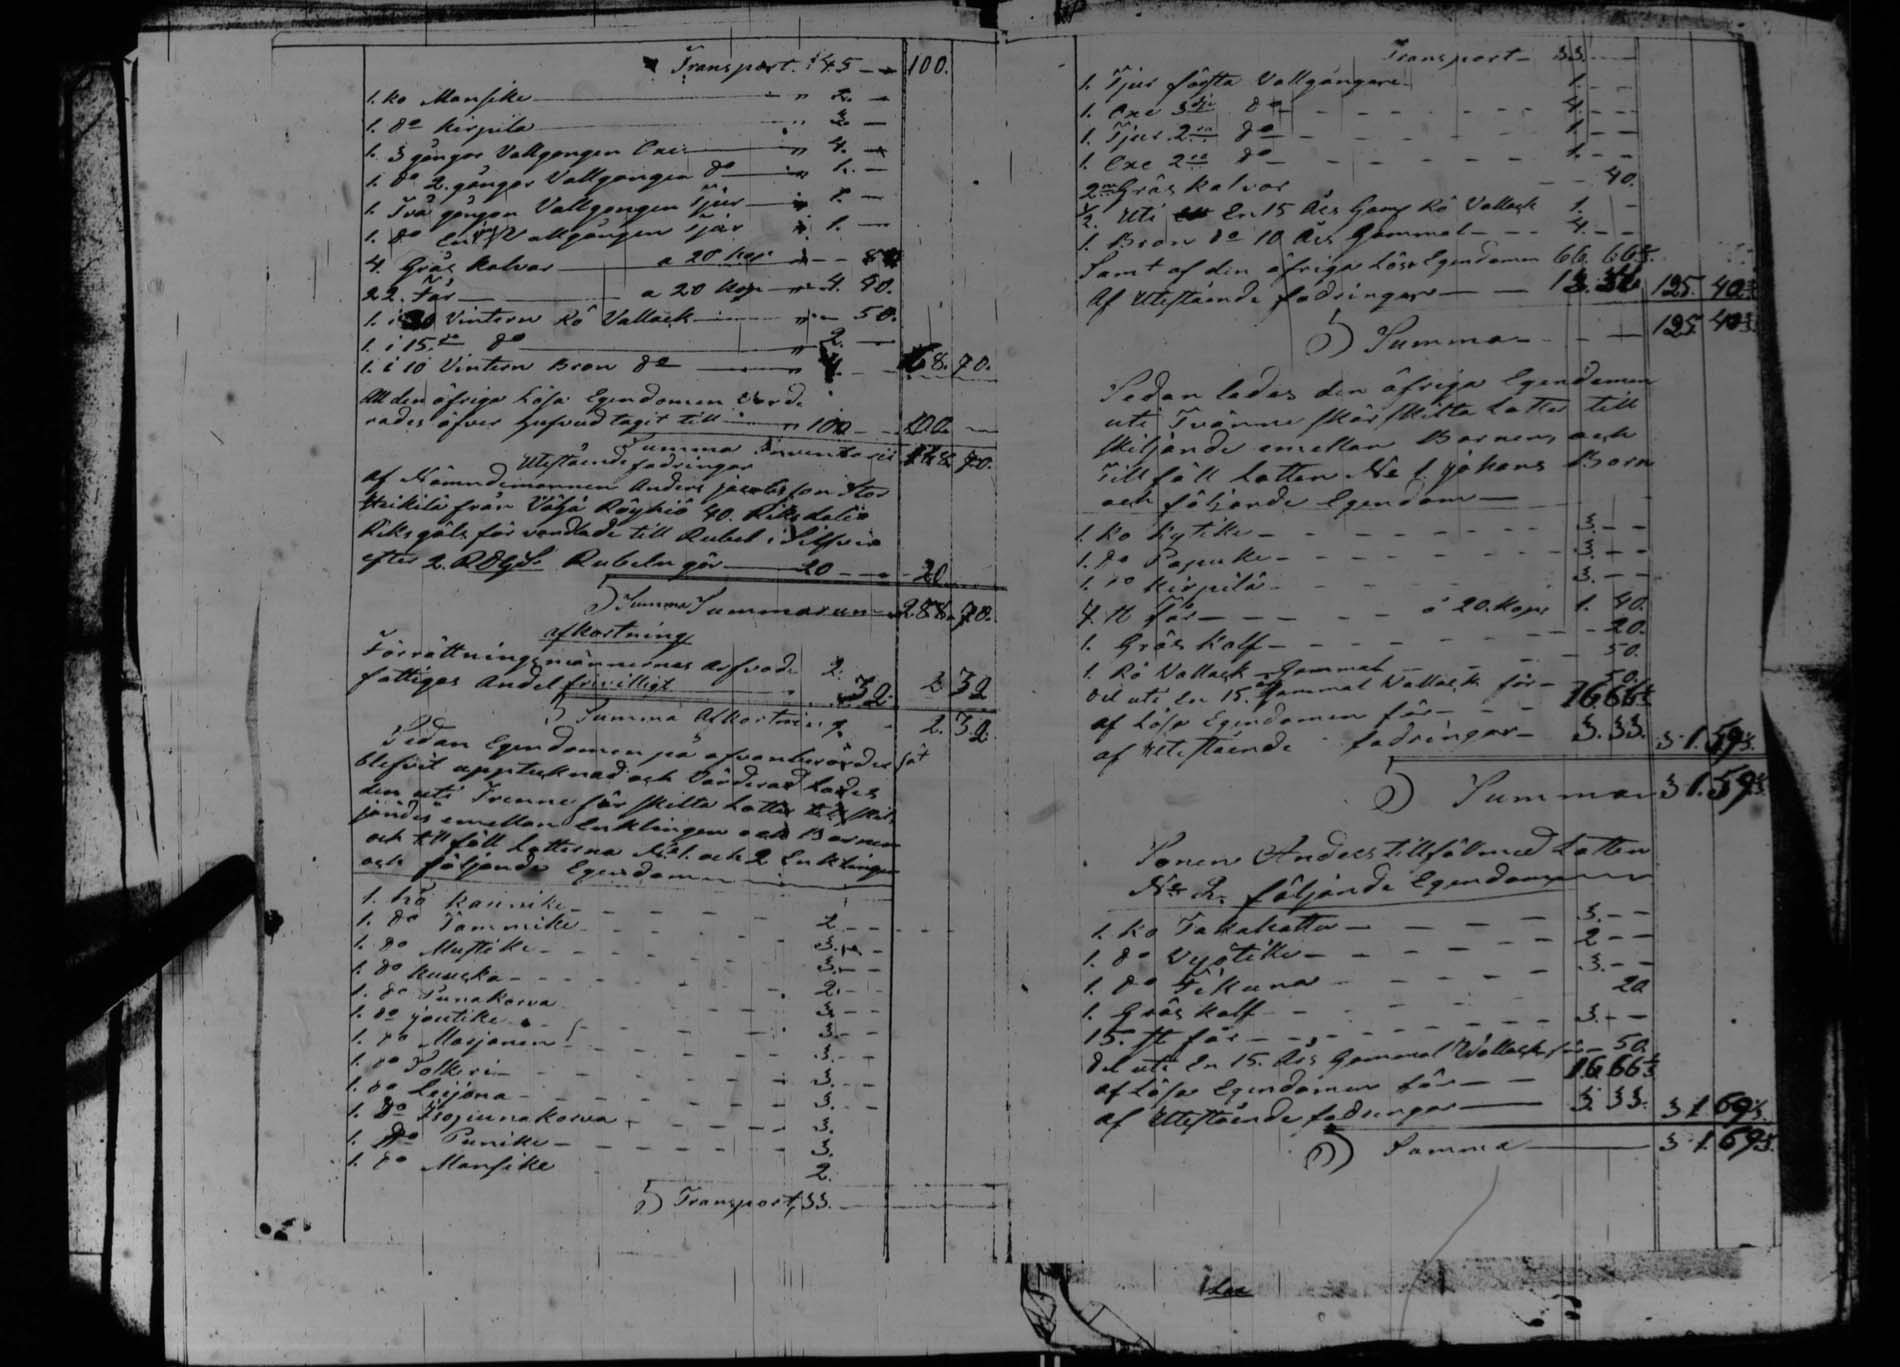 Transport. 45 — 100.
1. Ko Mansike — " 2. —
1. do Kirpila — " 3. —
1. 3 gångor Vallgången Oxe — " 4. —
1. do 2. gångor Vallgången do — " 1. —
1. Två gången Vallgången Tjur — 1. —
1. do En Vallgången Tjur 1. —
4. Gräs kalvar — a 20 kop — 80
22. Får — a 20 kop — 4. 40.
1. i Vintern Rö Vallack — " — 50.
1. i 15. do — " 2. —
1. i 10 Vintern Bron do — 4. — 68. 70.
All den öfriga Lösa Egendomen Värde
rades öfver hufvud tagit till — " 100 — 200 —
Summa Inventarii 70.
Utestående fodringar
af Nämndemannen Anders Jacobsson Stor
Heikilä från Röyhiö 40. Riksdaler
Riksgäls för vandlade till Rubel i Silfver
efter 2. RdgS. Rubeln gör — 20 — 20
Summa Summarum — 288. 70.
afkortning
Förrättningsmännernas arfvode 2.
fattigas Andel frivilligt — 32. 2 32
Summa Afkortning — 2. 32.
Sedan Egendomen på ofvanberörde sät
blefvit uppteknad och Värderad Lades
den uti Trenne sär skilta Lotter till skil
jandes emellan Enklingen och Barnen
och till föll Lotterna No 1. och 2 Enklingen
och följande Egendom
1. Ko Kannike
1. do Tammike 2
1. do Mustike 3.
1. do 3.
1. do Punakorva 2.
1. do Joutike 3.
1. do Marjanen 3.
1. do Polkeri 3.
1. do Leijona 3.
1. do 3.
1. do Punike 3.
1. do Mansike 2.
Transport, 33.
Transport — 33. —
1. Tjur första Vallgångare 1. —
1. Oxe 3dje do — 4. —
1. Tjur 2ra do — 1. —
1. Oxe 2ra do — 1. —
2 Gräs kalvar — 40.
1/2 Uti En 15 Års Gamf Rö Vallack 1. —
1. Bron do 10 Års Gammal — 4. —
Samt af den öfriga Lösa Egendomen 66. 66 2/3.
Af Utestående fodringar — 13. 34 125. 40 2/3
Summa — 125. 40 2/3.
Sedan lades den öfriga Egendomen
uti Tvänne skär skilta Lotter till
skiljande emellan Barnen och
Tillföll Lotten No 1. Johans Barn
och följande Egendom —
1. Ko Kytike — 3. —
1. do Papuke — 3. —
1. do Kirpilä — 3. —
7. St Får — á 20. Kop 1. 40.
1. Gräs Kalf — 20.
1. Rö Vallack Gammal 50.
Del uti En 15. års Gammal Vallack för — 50.
af Lösa Egendomen för — 16. 66 2/3
af Utestående fodringar — 3. 33. 31. 59 2/3.
Summa 31. 59 2/3.
Sonen Anders tillföll med Lotten
No 2. följande Egendom
1. Ko Takakatta — 3. —
1. do Vyötike — 2 —
1. do Tikuna 3. —
1. Gräs Kalf 20
15. St får — 3. —
Del uti En 15. Års Gammal Wallack för — 50.
af Lösa Egendomen för — 16. 66 2/3
af Utestående fodringar — 3. 33. 31. 69 2/3.
Summa — 31. 69 2/3.